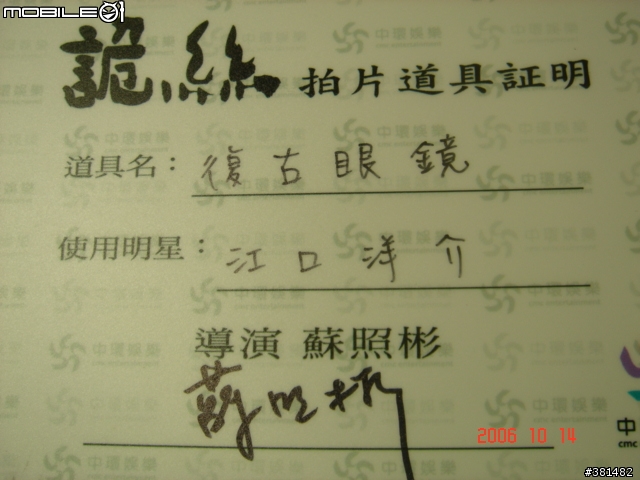 mobile01
詭絲 拍片道具証明
道具名：復古眼鏡
使用明星：江口洋介
導演 蘇照彬
蘇照彬
2006 10 14
中
cmc
#381482